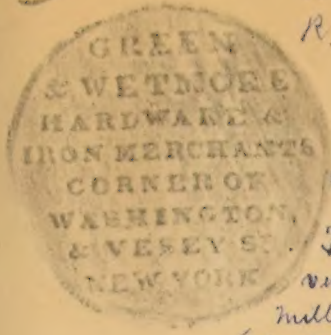 R
GREEN
& WETMORE
HARDWARE &
IRON MERCHANTS
CORNER OF
WASHINGTON,
& VESEY ST.
NEW YORK